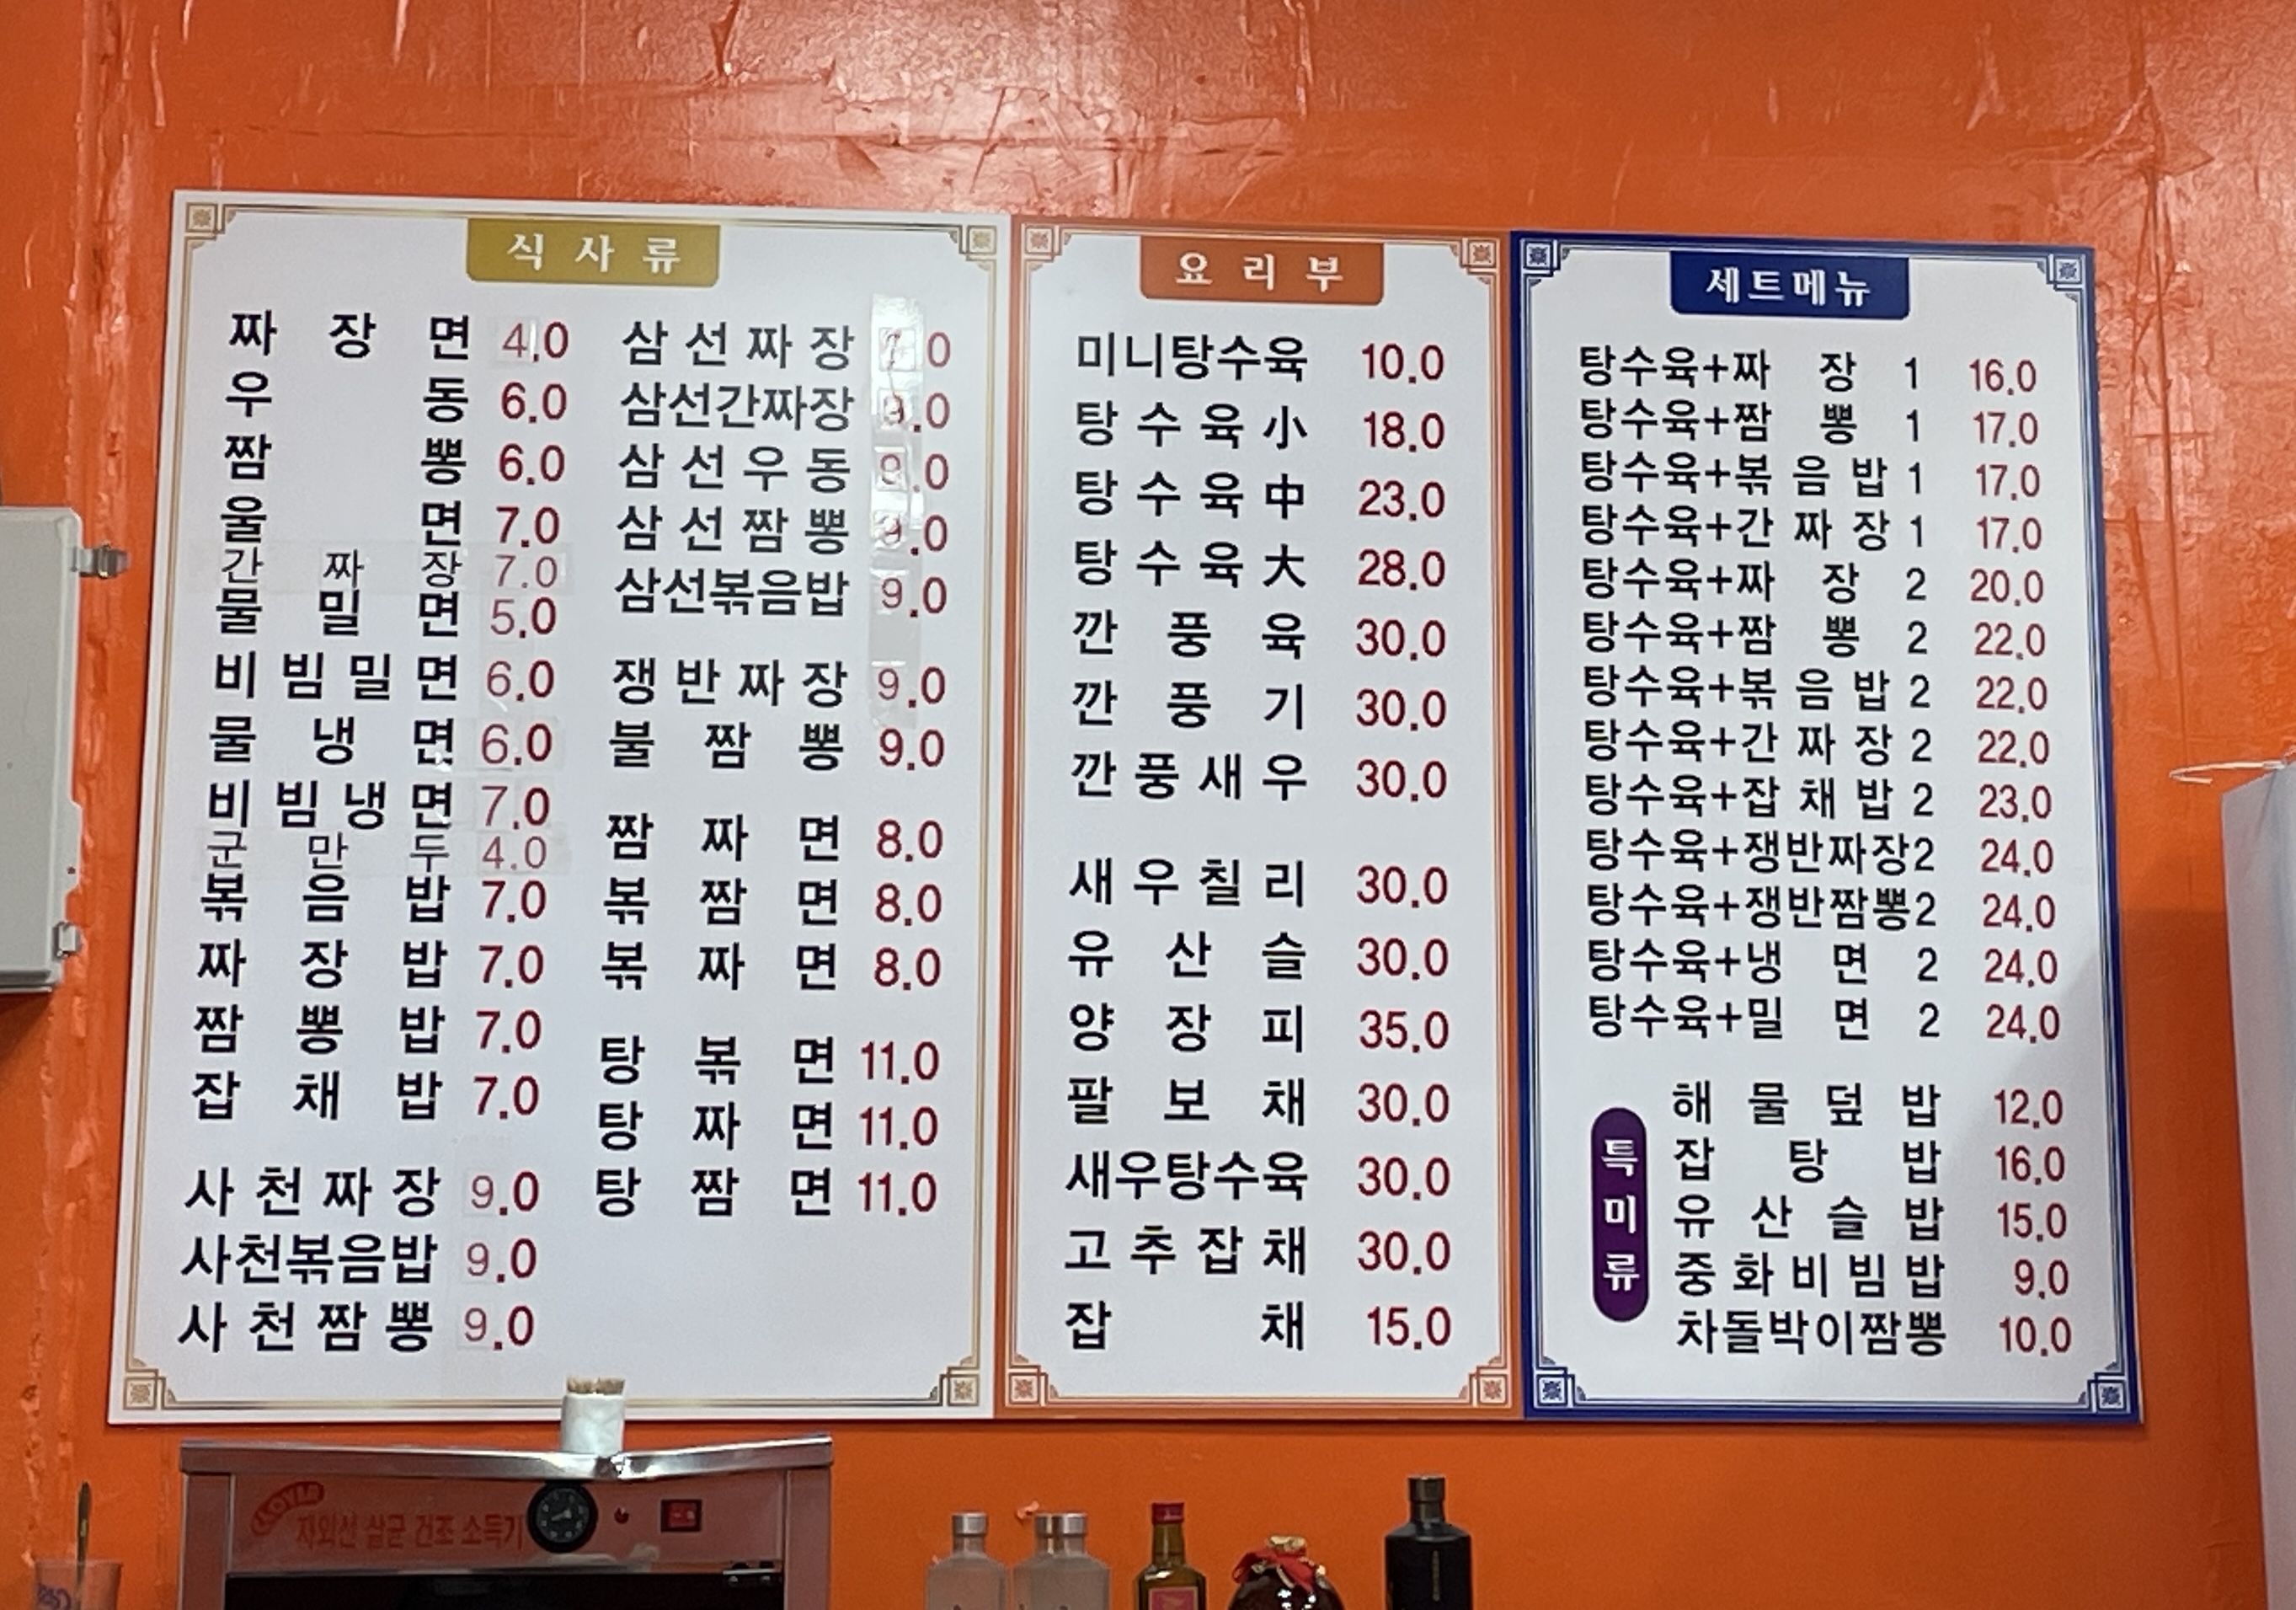 식사류
짜장면 4.0
우동 6.0
짬뽕 6.0
울면 7.0
간짜장 7.0
물밀면 5.0
비빔밀면 6.0
물냉면 6.0
비빔냉면 7.0
군만두 4.0
볶음밥 7.0
짜장밥 7.0
짬뽕밥 7.0
잡채밥 7.0
사천짜장 9.0
사천볶음밥 9.0
사천짬뽕 9.0
삼선짜장
삼선간짜장 9.0
삼선우동
삼선짬뽕 9.0
삼선볶음밥 9.0
쟁반짜장 9.0
불짬뽕 9.0
짬짜면 8.0
볶짬면 8.0
볶짜면 8.0
탕볶면 11.0
탕짜면 11.0
탕짬면 11.0
요리부
미니탕수육 10.0
탕수육小 18.0
탕수육中 23.0
탕수육大 28.0
깐풍육 30.0
깐풍기 30.0
깐풍새우 30.0
새우칠리 30.0
유산슬 30.0
양장피 35.0
팔보채 30.0
새우탕수육 30.0
고추잡채 30.0
잡채 15.0
세트메뉴
탕수육+짜장 1 16.0
탕수육+짬뽕 1 17.0
탕수육+볶음밥 1 17.0
탕수육+간짜장 1 17.0
탕수육+짜장 2 20.0
탕수육+짬뽕 2 22.0
탕수육+볶음밥 2 22.0
탕수육+간짜장 2 22.0
탕수육+잡채밥 2 23.0
탕수육+쟁반짜장2 24.0
탕수육+쟁반짬뽕2 24.0
탕수육+냉면 2 24.0
탕수육+밀면 2 24.0
특미류
해물덮밥 12.0
잡탕밥 16.0
유산슬밥 15.0
중화비빔밥 9.0
차돌박이짬뽕 10.0
자외선 살균 건조 소독기